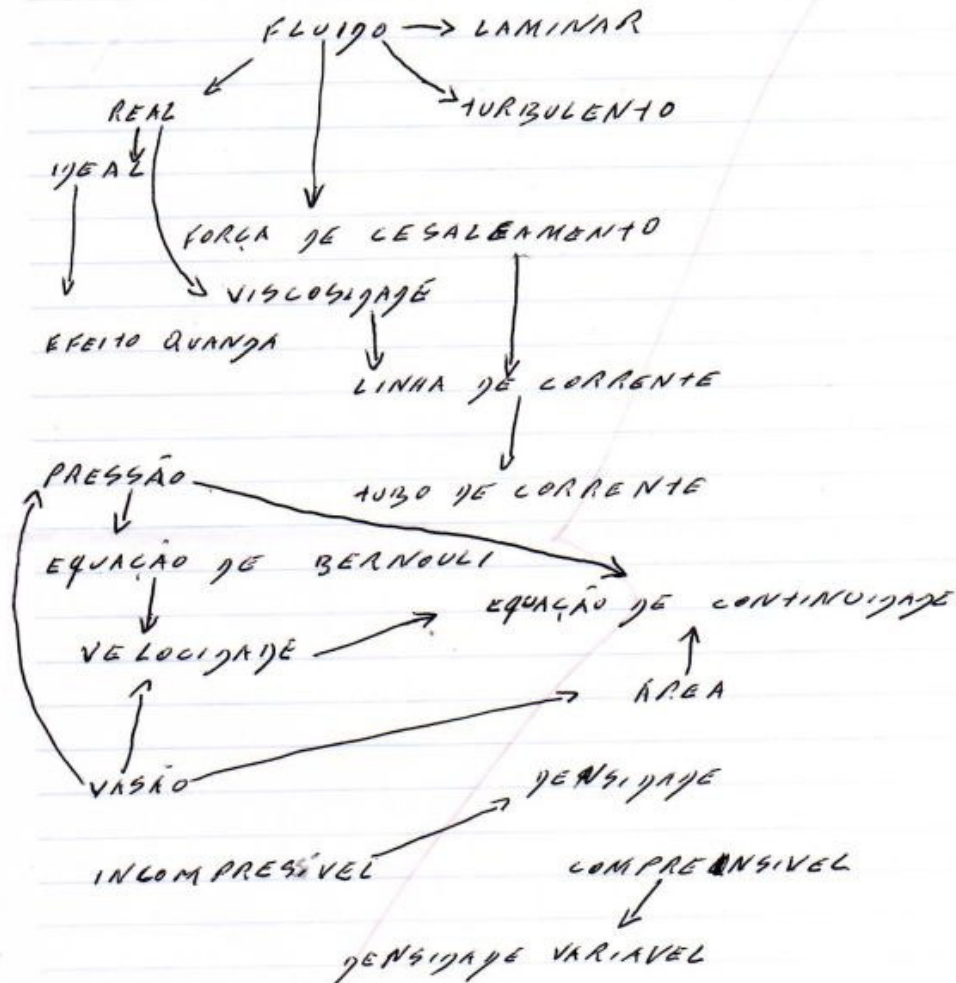 FLUIDO → LAMINAR
REAL
TURBULENTO
IDEAL
FORÇA DE CESALEAMENTO
VISCOSIDADE
EFEITO QUANDA
LINHA DE CORRENTE
PRESSÃO
TUBO DE CORRENTE
EQUAÇÃO DE BERNOULI
EQUAÇÃO DE CONTINUIDADE
VELOCIDADE
ÁREA
VASÃO
DENSIDADE
INCOMPRESSÍVEL
COMPREENSIVEL
DENSIDADE VARIAVEL